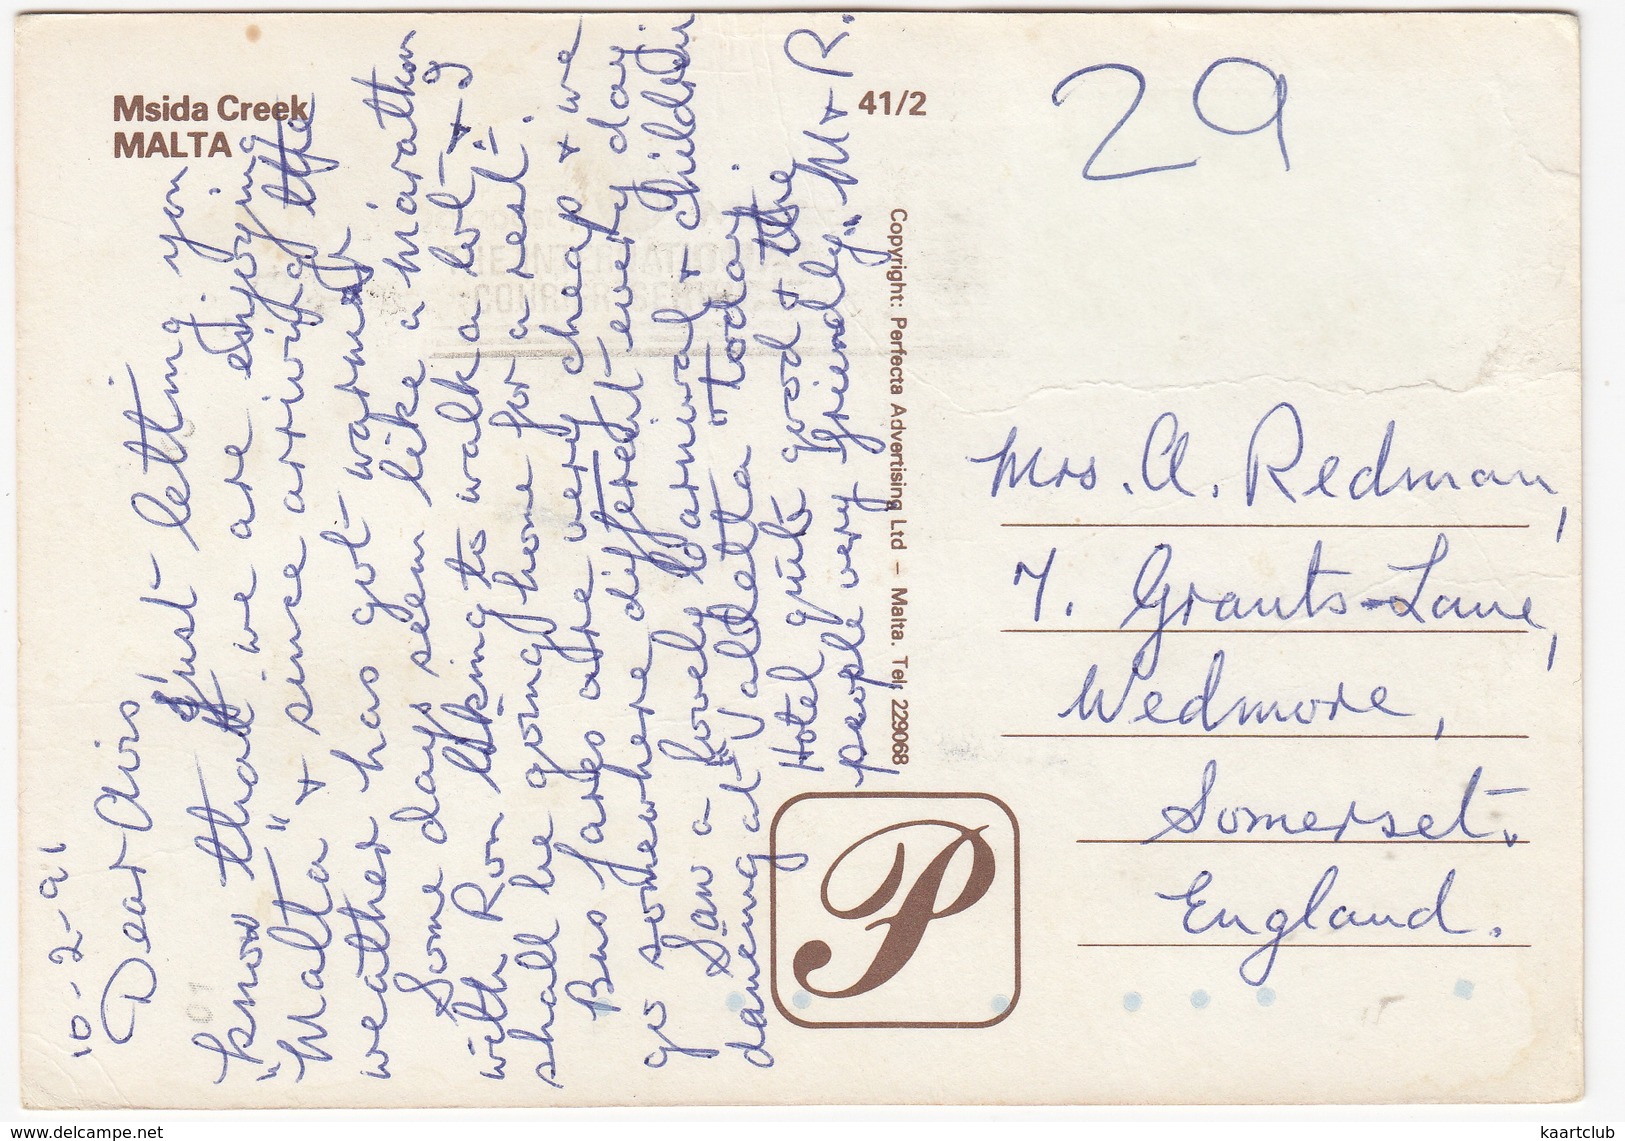 Msida Creek
MALTA
41/2
29
10-2-91
Dear Avis,
Just letting you
know that we are enjoying
"Malta" + since arriving the
weather has got warmer
Some days seem like a marathon
with Ron liking to walk a lot + I
shall be going home for a rest!
Bus fares are very cheap + we
go somewhere different every day.
Saw a lovely carnival + children
dancing at "Valdetta" today.
Hotel quite good + the
people very friendly. M + R.
Copyright: Perfecta Advertising Ltd – Malta. Tel: 229068
P
Mrs. A. Redman,
7. Grants-Lane,
Wedmore,
Somerset.
England.
THE INTERNATIONAL
COURIER SERVICE
www.delcampe.net
kaartclub